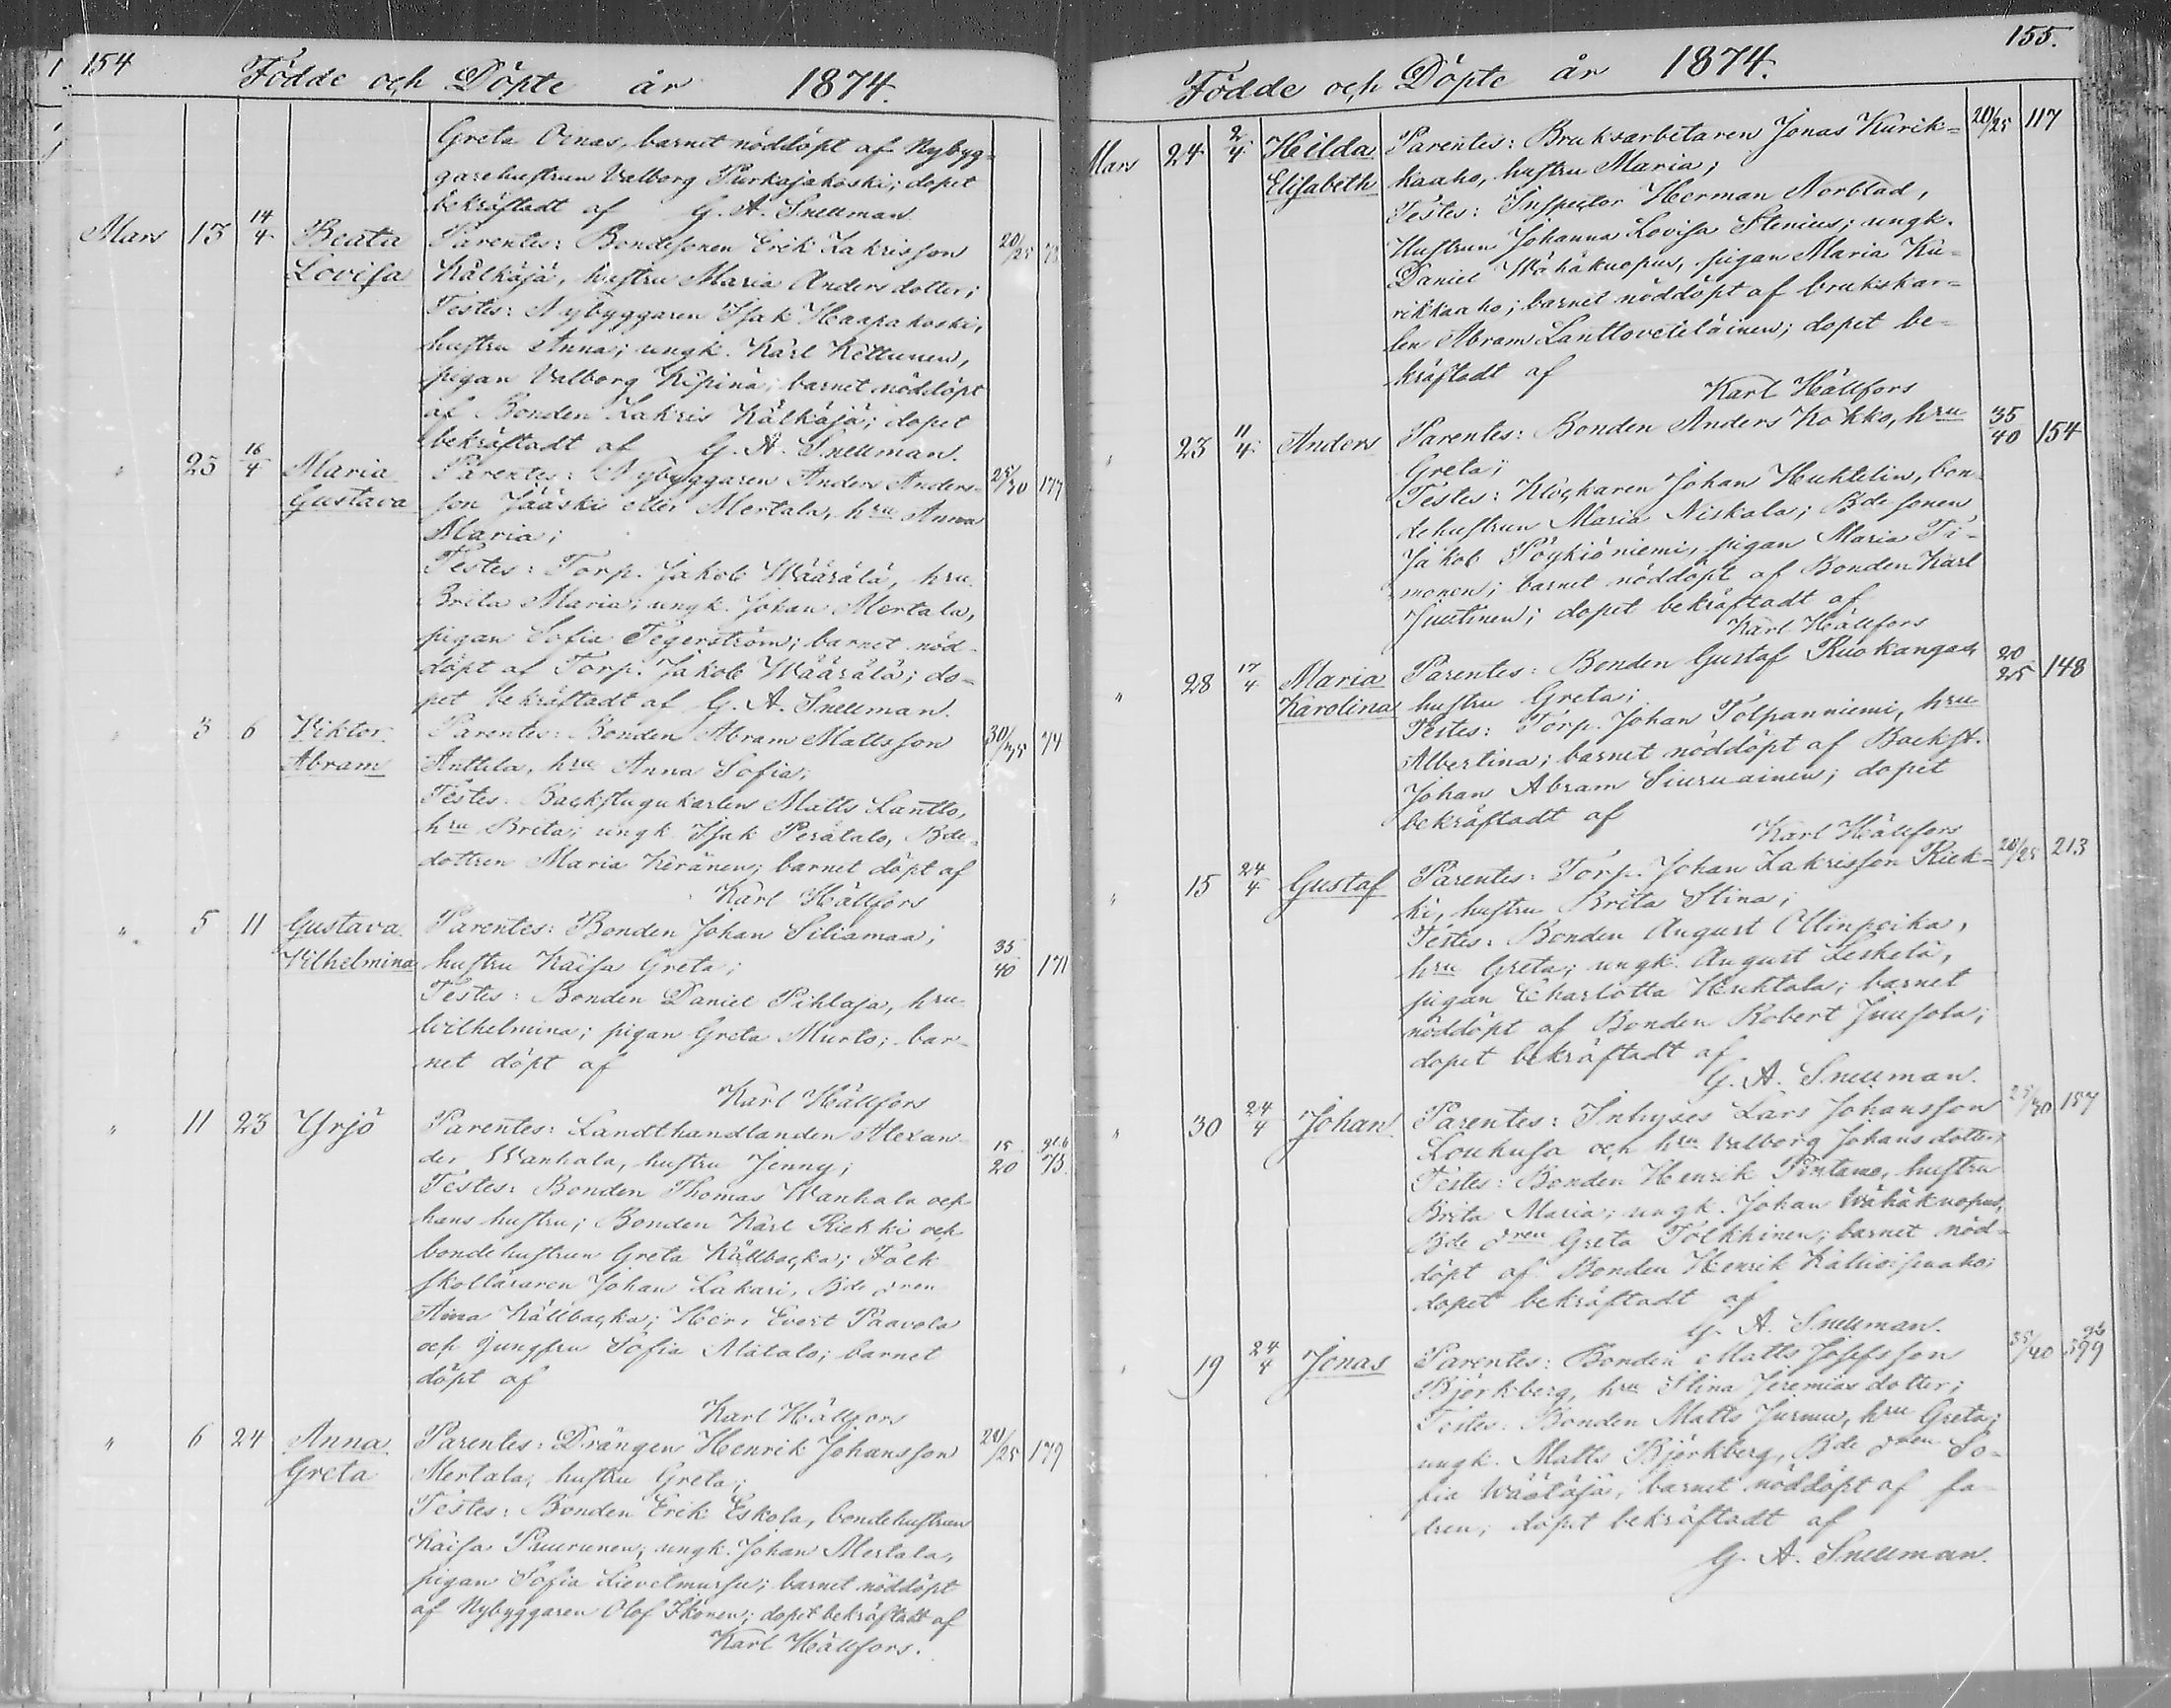 154
Födde och Döpte år 1874.
Greta Oinas, barnet nöddöpt af Nybyg-
garehustrun Valborg Purkajakoski; dopet
bekräftadt af G. A. Snellman.
Mars 13 14/4 Beata Parentes: Bondesonen Erik Zakrisson 20/25 73
Lovisa Kälkäjä, hustru Maria Andersdotter;
Testes: Nybyggaren Isak Haapakoski,
hustru Anna; ungk. Karl Kettunen,
pigan Valborg Kipinä; barnet nöddöpt
af Bonden Zakris Kälkäjä; dopet
bekräftadt af G. A. Snellman.
" 25 16/4 Maria Parentes: Nybyggaren Anders Anders- 25/30 177
Gustava son Jääskö eller Mertala, hru Anna
Maria;
Testes: Torp. Jakob Wäärälä, hru
Brita Maria; ungk. Johan Mertala,
pigan Sofia Tegerström; barnet nöd-
döpt af Torp. Jakob Wäärälä; do-
pet bekräftadt af G. A. Snellman.
" 3 6 Viktor Parentes: Bonden Abram Mattsson 30/35 74
Abram Anttila, hru Anna Sofia;
Testes: Backstugukarlen Matts Lantto,
hru Brita; ungk. Isak Perätalo, Bde
dottren Maria Keränen; barnet döpt af
Karl Hällfors
" 5 11 Gustava Parentes: Bonden Johan Siliamaa; 35/40 171
Vilhelmina hustru Kaisa Greta;
Testes: Bonden Daniel Pihlaja, hru
Wilhelmina; pigan Greta Murto; bar-
net döpt af
Karl Hällfors
" 11 23 Yrjö Parentes: Landthandlanden Alexan- 15/20
der Wanhala, hustru Jenny; 75.
Testes: Bonden Thomas Wanhala och
hans hustru; Bonden Karl Riekki och
bondehustrun Greta Källbacka; Folk
skolläraren Johan Lakari, Bde dren
Aina Källbacka; Herr Evert Paavola
och jungfru Sofia Alatalo; barnet
döpt af
Karl Hällfors
" 6 24 Anna Parentes: Drängen Henrik Johansson 20/25 179
Greta Mertala, hustru Greta;
Testes: Bonden Erik Eskola, bondehustrun
Kaisa Puurunen; ungk. Johan Mertala,
pigan Sofia; barnet nöddöpt
af Nybyggaren Olof Ikonen; dopet bekräftadt af
Karl Hällfors.
155.
Födde och Döpte år 1874.
Mars 24 2/4 Hilda Parentes: Bruksarbetaren Jonas Kurik- 20/25 117
Elisabeth kaaho, hustru Maria;
Testes: Inspector Herman Norblad,
Hustrun Johanna Lovisa Stenius; ungk.
Daniel Wähäkuopus, pigan Maria Ku-
rikkaaho; barnet nöddöpt af brukskar-
len Abram Lanttoveteläinen; dopet be-
kräftadt af
Karl Hällfors
" 23 11/4 Anders Parentes: Bonden Anders Kokko, hru 35/40 154
Greta;
Testes: Klockaren Johan Huhtelin, bon-
dehustrun Maria Niskala; Bdesonen
Jakob Pöykiöniemi, pigan Maria Ti-
monen; barnet nöddöpt af Bonden Karl
Juutinen; dopet bekräftadt af
Karl Hällfors
" 28 17/4 Maria Parentes: Bonden Gustaf Ruokangas, 20/25 148
Karolina hustru Greta;
Testes: Torp. Johan Tolpanniemi, hru
Albertina; barnet nöddöpt af Backst.
Johan Abram Siuruainen; dopet
bekräftadt af
Karl Hällfors
" 15 24/4 Gustaf Parentes: Torp. Johan Zakrisson Riek- 20/25 213
ki, hustru Brita Stina;
Testes: Bonden August Ollinpoika,
hru Greta; ungk. August Leskelä,
pigan Charlotta Huhtala; barnet
nöddöpt af Bonden Robert Juusola;
dopet bekräftadt af
G. A. Snellman.
" 30 24/4 Johan Parentes: Inhyses Lars Johansson 25/30 157
Loukusa och hru Valborg Johansdotter;
Testes: Bonden Henrik Pintamo, hustru
Brita Maria; ungk. Johan Wähäkuopus,
Bde dren Greta Tolkkinen; barnet nöd-
döpt af Bonden Henrik
dopet bekräftadt af
G. A. Snellman.
" 19 24/4 Jonas Parentes: Bonden Matts Josefsson 35/40 99
Björkberg, hru Stina Jeremias dotter;
Testes: Bonden Matts Jurmu, hru Greta;
ungk. Matts Björkberg, Bde dren So-
fia Wäätäjä, barnet nöddöpt af fa-
dren; dopet bekräftadt af
G. A. Snellman.